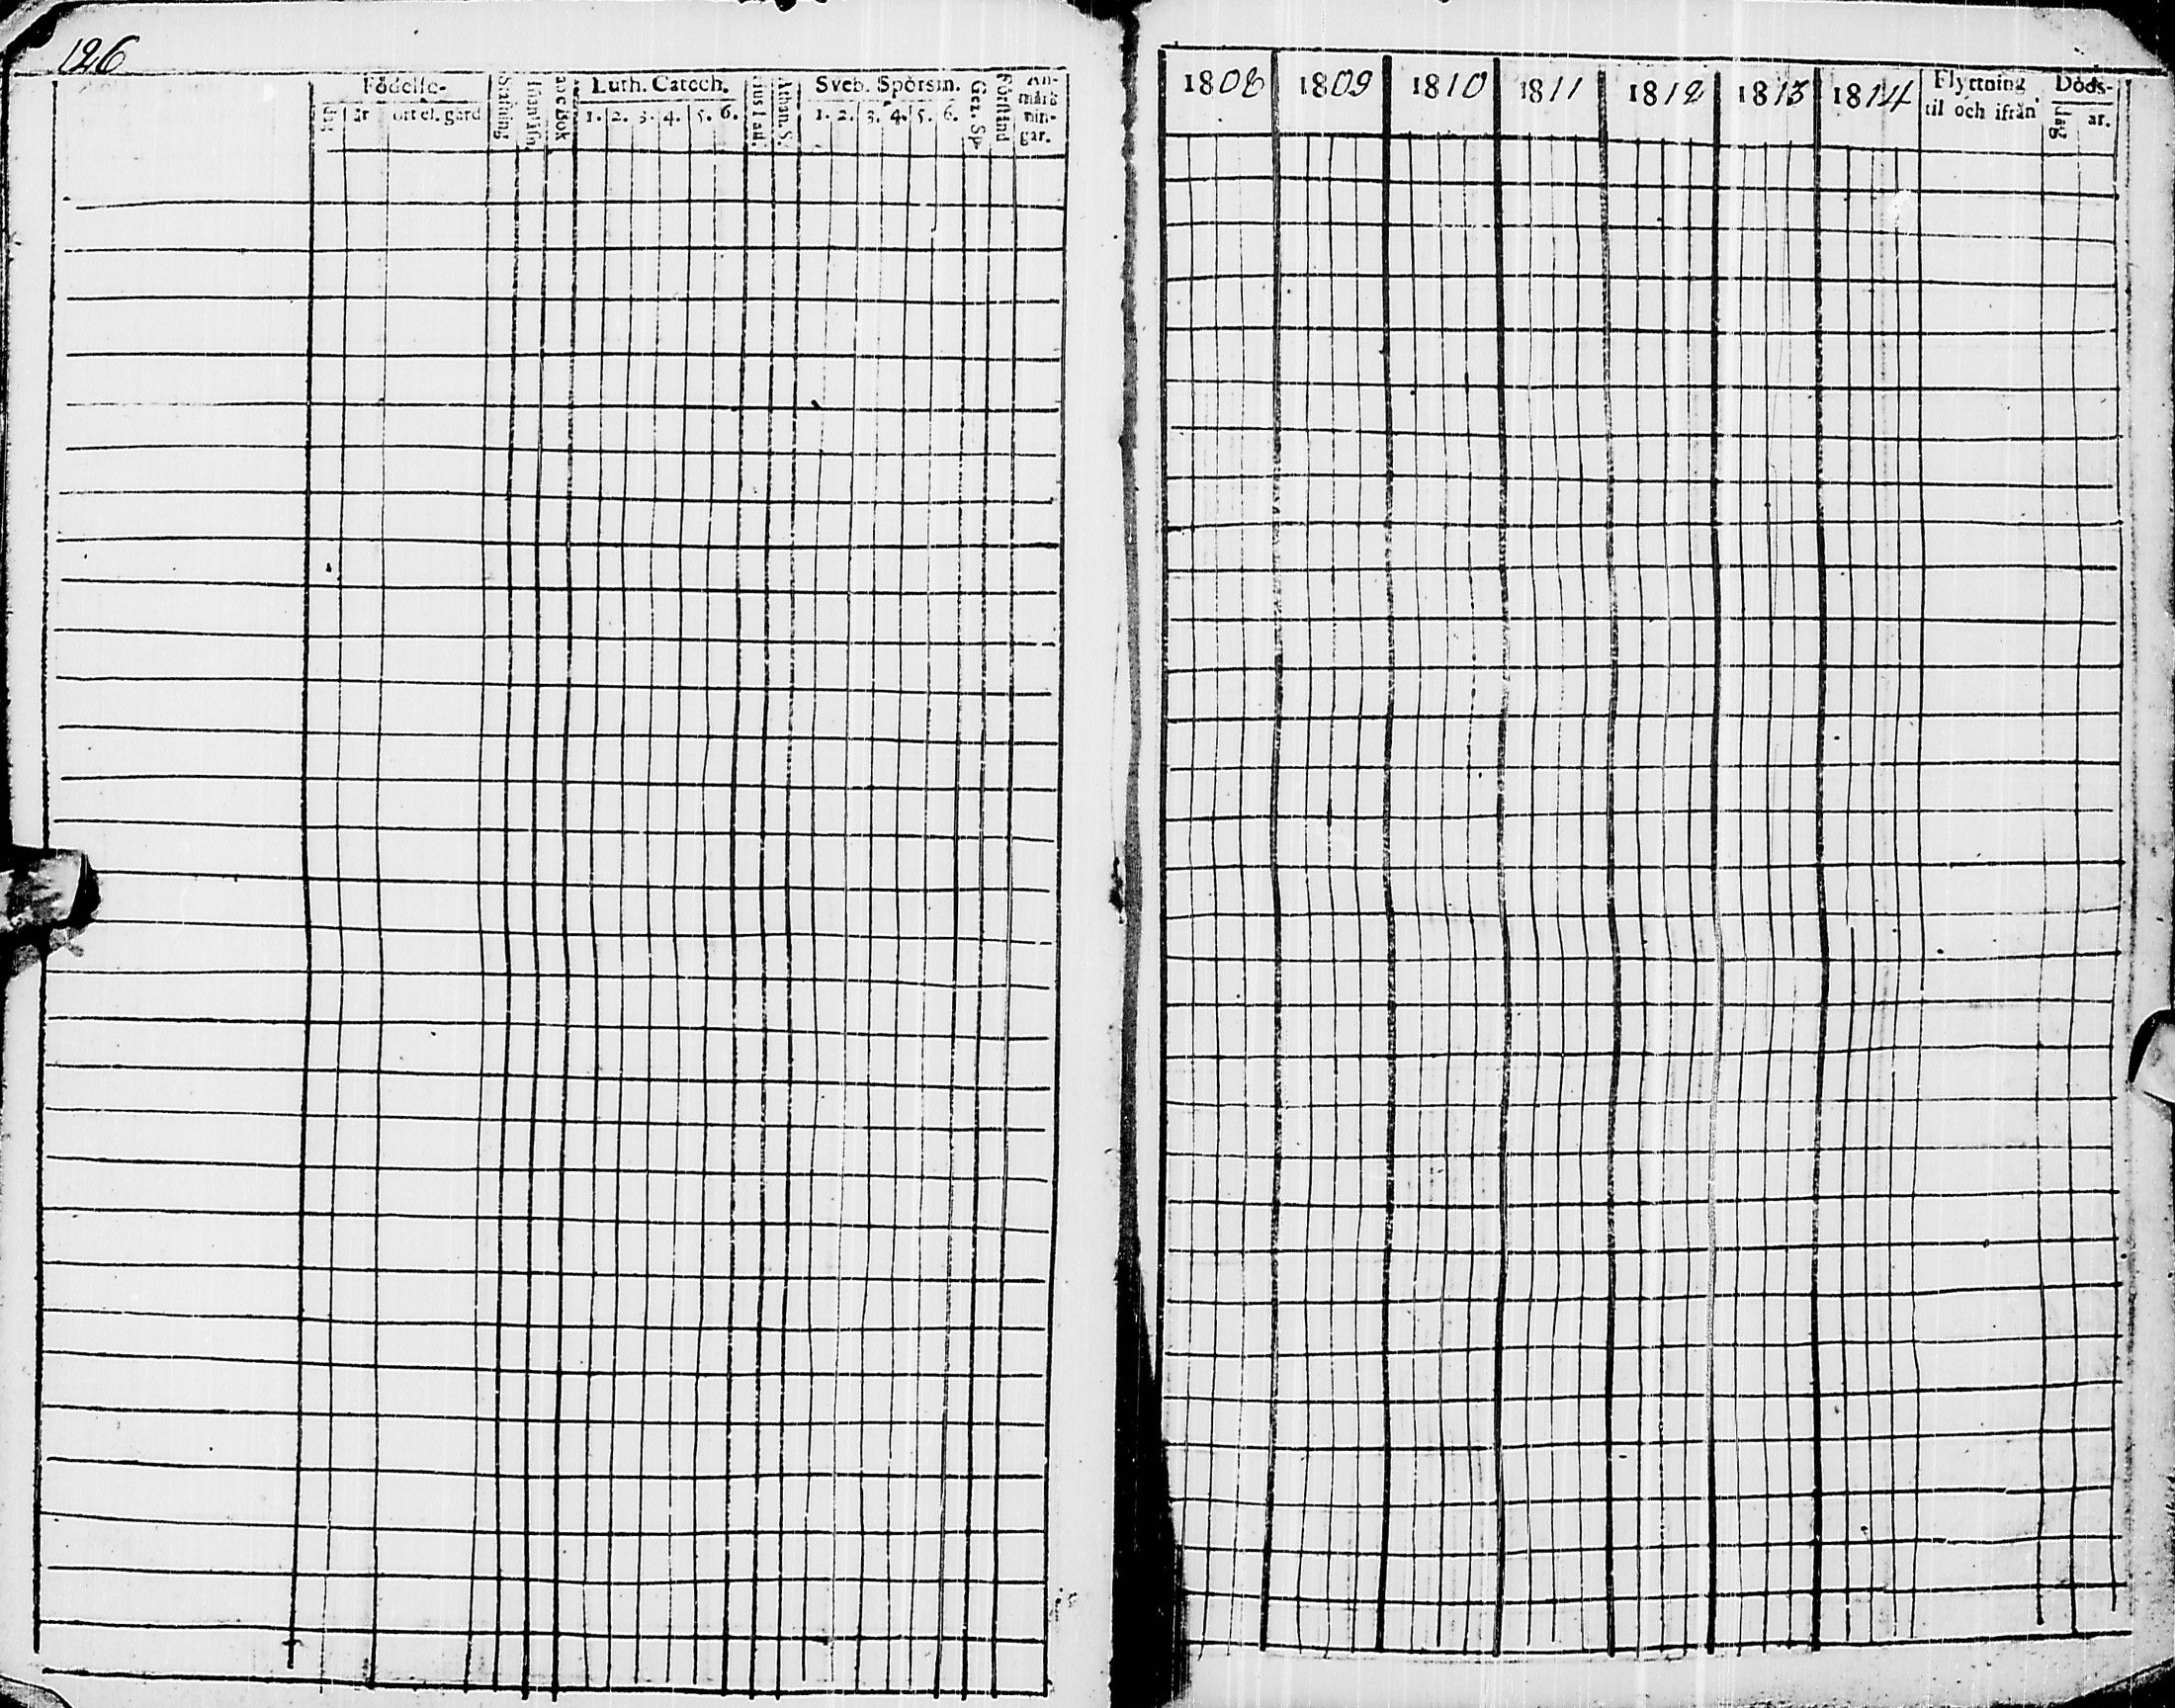 126
Födelse-
dag
år
ort el. gård
Stafning
Innanläsn.
Luth. Catech.
1. 2. 3. 4. 5. 6.
Athan. S.
Sveb. Spörsm.
1. 2. 3. 4. 5. 6.
Ger. Sp.
Förstånd
An-
märk
nin-
gar.
1808 1809 1810 1811 1812 1813 1814
Flyttning
til och ifrån
Döds-
dag
år.